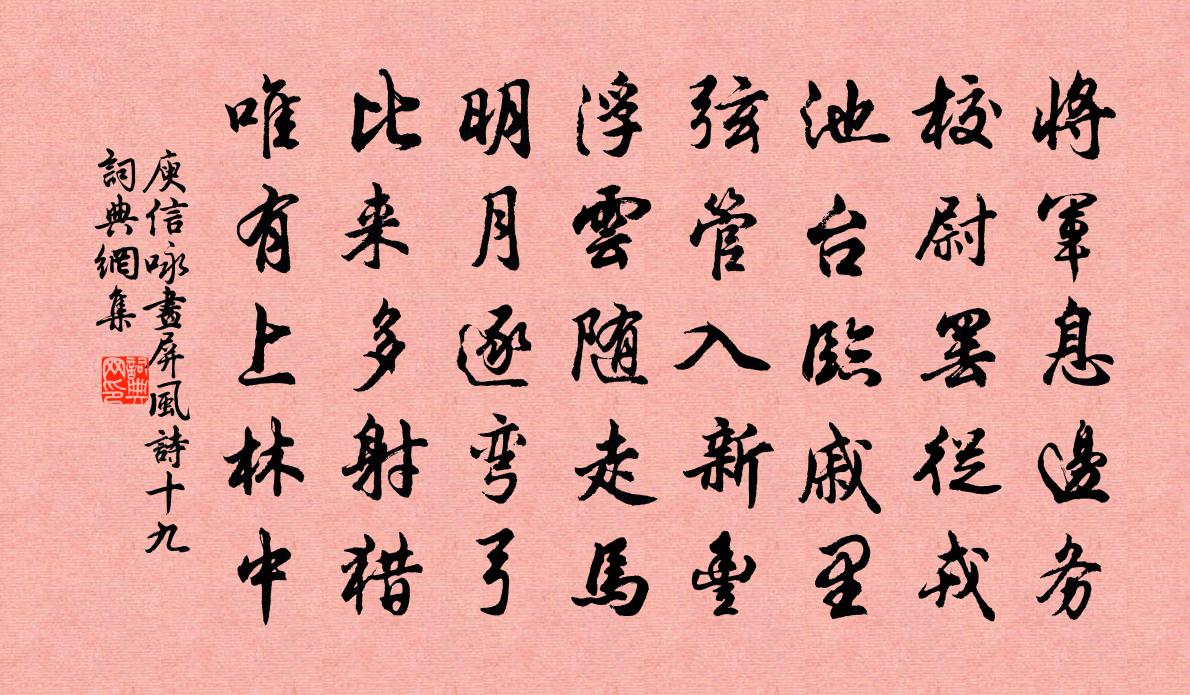 将軍息邊务
校尉罢從戎
池台臨戚里
弦管入新豊
浮雲随走馬
明月逐弯弓
比来多射猎
唯有上林中
庾信咏畫屏風詩十九
詞典網集
詞典网印